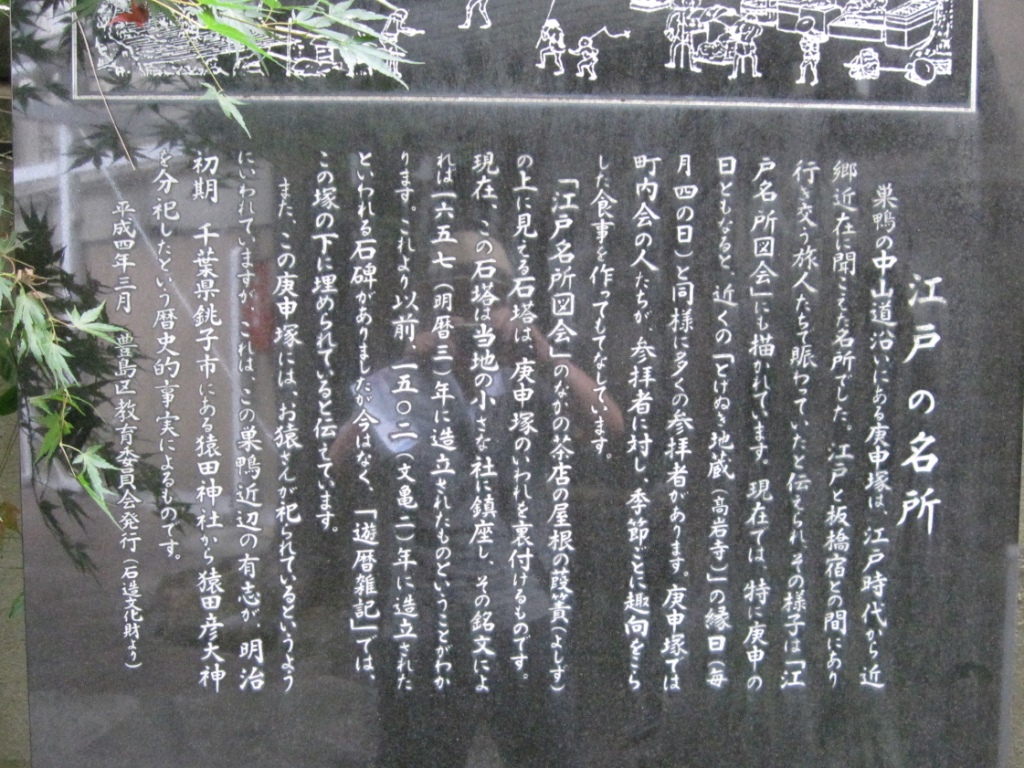 江戸の名所
巣鴨の中山道沿いにある庚申塚は、江戸時代から近
郷近在に聞こえた名所でした。江戸と板橋宿との間にあり
行き交う旅人たちで賑わっていたと伝えられ、その様子は「江
戸名所図会」にも描かれています。現在では、特に庚申の
日ともなると、近くの「とげぬき地蔵(高岩寺)」の縁日(毎
月四の日)と同様に多くの参拝者があります。庚申塚では
町内会の人たちが、参拝者に対し、季節ごとに趣向をこら
した食事を作ってもてなしています。
「江戸名所図会」のなかの茶店の屋根の葭簀(よしず)
の上に見える石塔は、庚申塚のいわれを裏付けるものです。
現在、この石塔は当地の小さな社に鎮座し、その銘文によ
れば一六五七(明暦三)年に造立されたものということがわか
ります。これより以前、一五〇二(文亀二)年に造立された
といわれる石碑がありましたが今はなく、「遊暦雑記」では、
この塚の下に埋められていると伝えています。
また、この庚申塚には、お猿さんが祀られているというよう
にいわれていますが、これは、この巣鴨近辺の有志が、明治
初期 千葉県銚子市にある猿田神社から猿田彦大神
を分祀したという暦史的事実によるものです。
平成四年三月 豊島区教育委員会発行(石造文化財より)